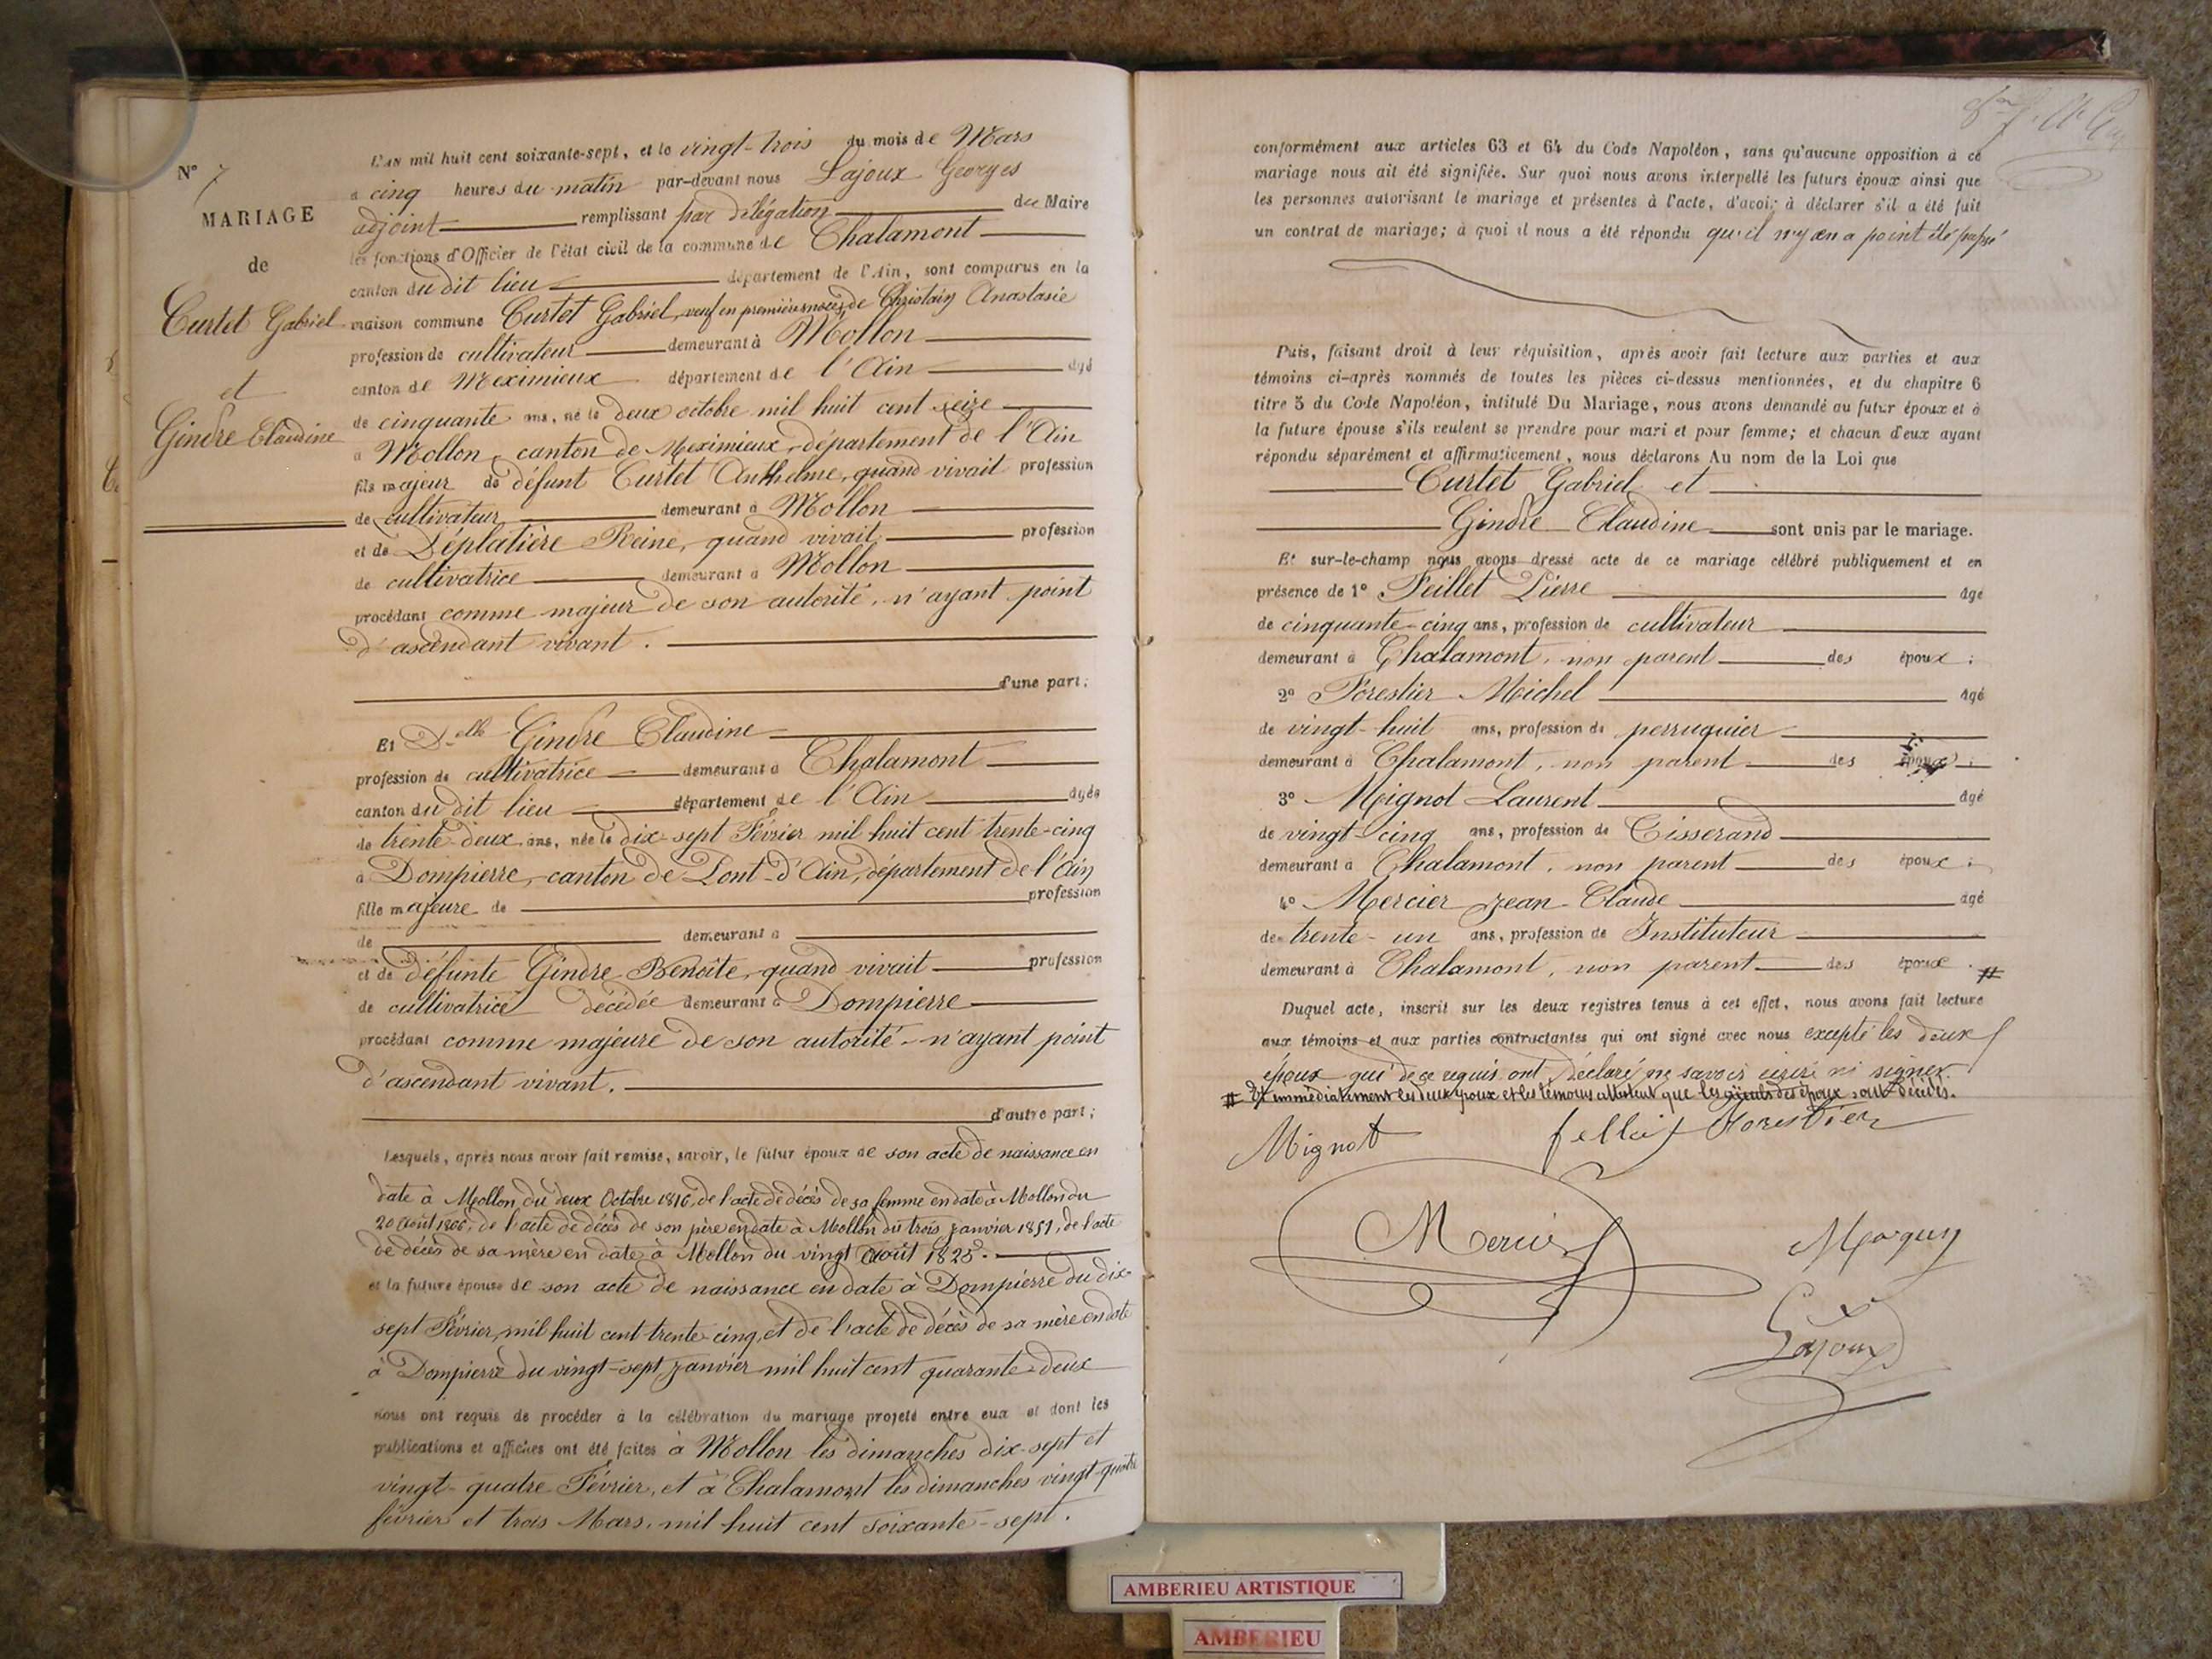 N° 7
MARIAGE
de
Curtet Gabriel
et
Gindre Claudine
L'AN mil huit cent soixante-sept, et le vingt-trois du mois de Mars
à cinq heures du matin par-devant nous Lajoux Georges
adjoint remplissant par délégation du Maire
les fonctions d'Officier de l'état civil de la commune de Chalamont
canton du dit lieu département de l'Ain, sont comparus en la
maison commune Curtet Gabriel, veuf en premières noces de Christain Anastasie
profession de cultivateur demeurant à Mollon
canton de Meximieux département de l'Ain âgé
de cinquante ans, né le deux octobre mil huit cent seize
à Mollon, canton de Meximieux, département de l'Ain
fils majeur de défunt Curtet Anthelme, quand vivait profession
de cultivateur demeurant à Mollon
et de Déplatière Reine, quand vivait profession
de cultivatrice demeurant à Mollon
procédant comme majeur de son autorité, n'ayant point
d'ascendant vivant.
d'une part;
Et Delle Gindre Claudine
profession de cultivatrice demeurant à Chalamont
canton du dit lieu département de l'Ain âgée
de trente deux ans, née le dix-sept Février mil huit cent trente-cinq
à Dompierre, canton de Pont-d'Ain, département de l'Ain
fille majeure de profession
de demeurant à
et de défunte Gindre Benoîte, quand vivait profession
de cultivatrice décédée demeurant à Dompierre
procédant comme majeure de son autorité - n'ayant point
d'ascendant vivant.
d'autre part;
Lesquels, après nous avoir fait remise, savoir, le futur époux de son acte de naissance en
date à Mollon du deux Octobre 1816, de l'acte de décès de sa femme en date à Mollon du
20 Août 1866, de l'acte de décès de son père en date à Mollon du trois janvier 1851, de l'acte
de décès de sa mère en date à Mollon du vingt Août 1825.
et la future épouse de son acte de naissance en date à Dompierre du dix-
sept Février mil huit cent trente-cinq, et de l'acte de décès de sa mère en date
à Dompierre du vingt-sept janvier mil huit cent quarante-deux
nous ont requis de procéder à la célébration du mariage projeté entre eux et dont les
publications et affiches ont été faites à Mollon les dimanches dix-sept et
vingt-quatre Février, et à Chalamont les dimanches vingt-quatre
février et trois Mars, mil huit cent soixante-sept.
conformément aux articles 63 et 64 du Code Napoléon, sans qu'aucune opposition à ce
mariage nous ait été signifiée. Sur quoi nous avons interpellé les futurs époux ainsi que
les personnes autorisant le mariage et présentes à l'acte, d'avoir à déclarer s'il a été fait
un contrat de mariage; à quoi il nous a été répondu qu'il n'y en a point été passé
Puis, faisant droit à leur réquisition, après avoir fait lecture aux parties et aux
témoins ci-après nommés de toutes les pièces ci-dessus mentionnées, et du chapitre 6
titre 5 du Code Napoléon, intitulé Du Mariage, nous avons demandé au futur époux et à
la future épouse s'ils veulent se prendre pour mari et pour femme; et chacun d'eux ayant
répondu séparément et affirmativement, nous déclarons Au nom de la Loi que
Curtet Gabriel et
Gindre Claudine sont unis par le mariage.
Et sur-le-champ nous avons dressé acte de ce mariage célébré publiquement et en
présence de 1° Feillet Pierre âgé
de cinquante-cinq ans, profession de cultivateur
demeurant à Chalamont, non parent des époux;
2° Forestier Michel âgé
de vingt-huit ans, profession de perruquier
demeurant à Chalamont, non parent des époux;
3° Mignot Laurent âgé
de vingt cinq ans, profession de Tisserand
demeurant à Chalamont, non parent des époux;
4° Mercier Jean-Claude âgé
de trente-un ans, profession de Instituteur
demeurant à Chalamont, non parent des époux. #
Duquel acte, inscrit sur les deux registres tenus à cet effet, nous avons fait lecture
aux témoins et aux parties contractantes qui ont signé avec nous excepté les deux
époux qui de ce requis ont déclaré ne savoir écrire ni signer.
# Et immédiatement les deux époux et les témoins attestent que les aïeuls des époux sont décédés.
Mignot feillet Forestier
Mercier
Lajoux
AMBERIEU ARTISTIQUE
AMBERIEU